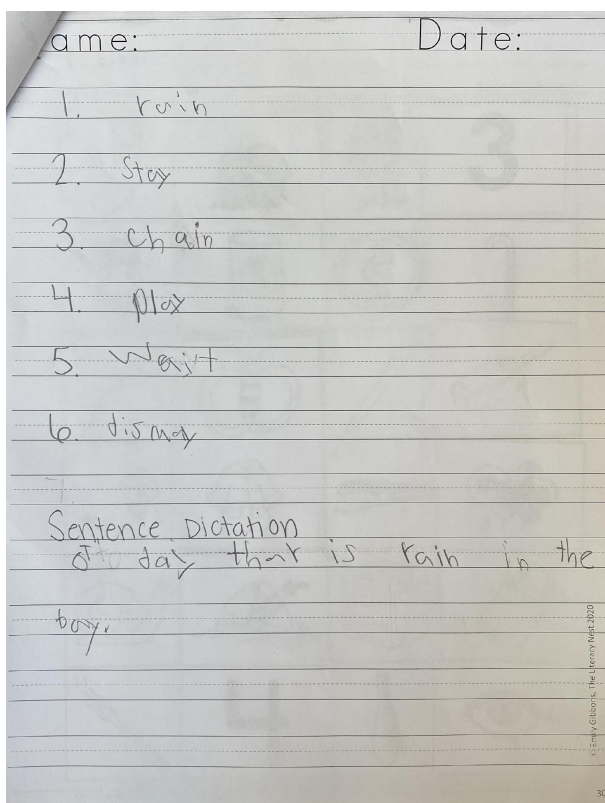 ame: Date:
1. rain
2. Stay
3. chain
4. play
5. Wait
6. dismay
7.
Sentence Dictation
day that is rain in the
bay.
© Emily Gibbons, The Literacy Nest 2020
30